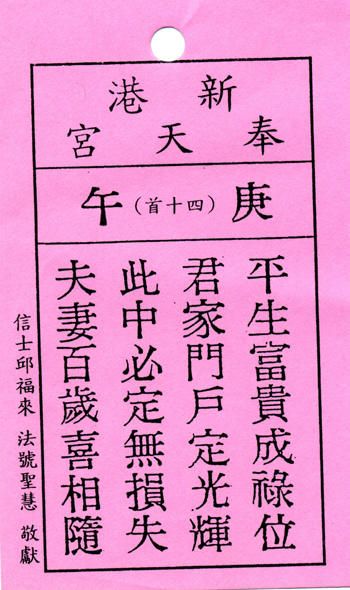 新港
奉天宮
庚（四十首）午
平生富貴成祿位
君家門戶定光輝
此中必定無損失
夫妻百歲喜相隨
信士邱福來 法號聖慧 敬獻